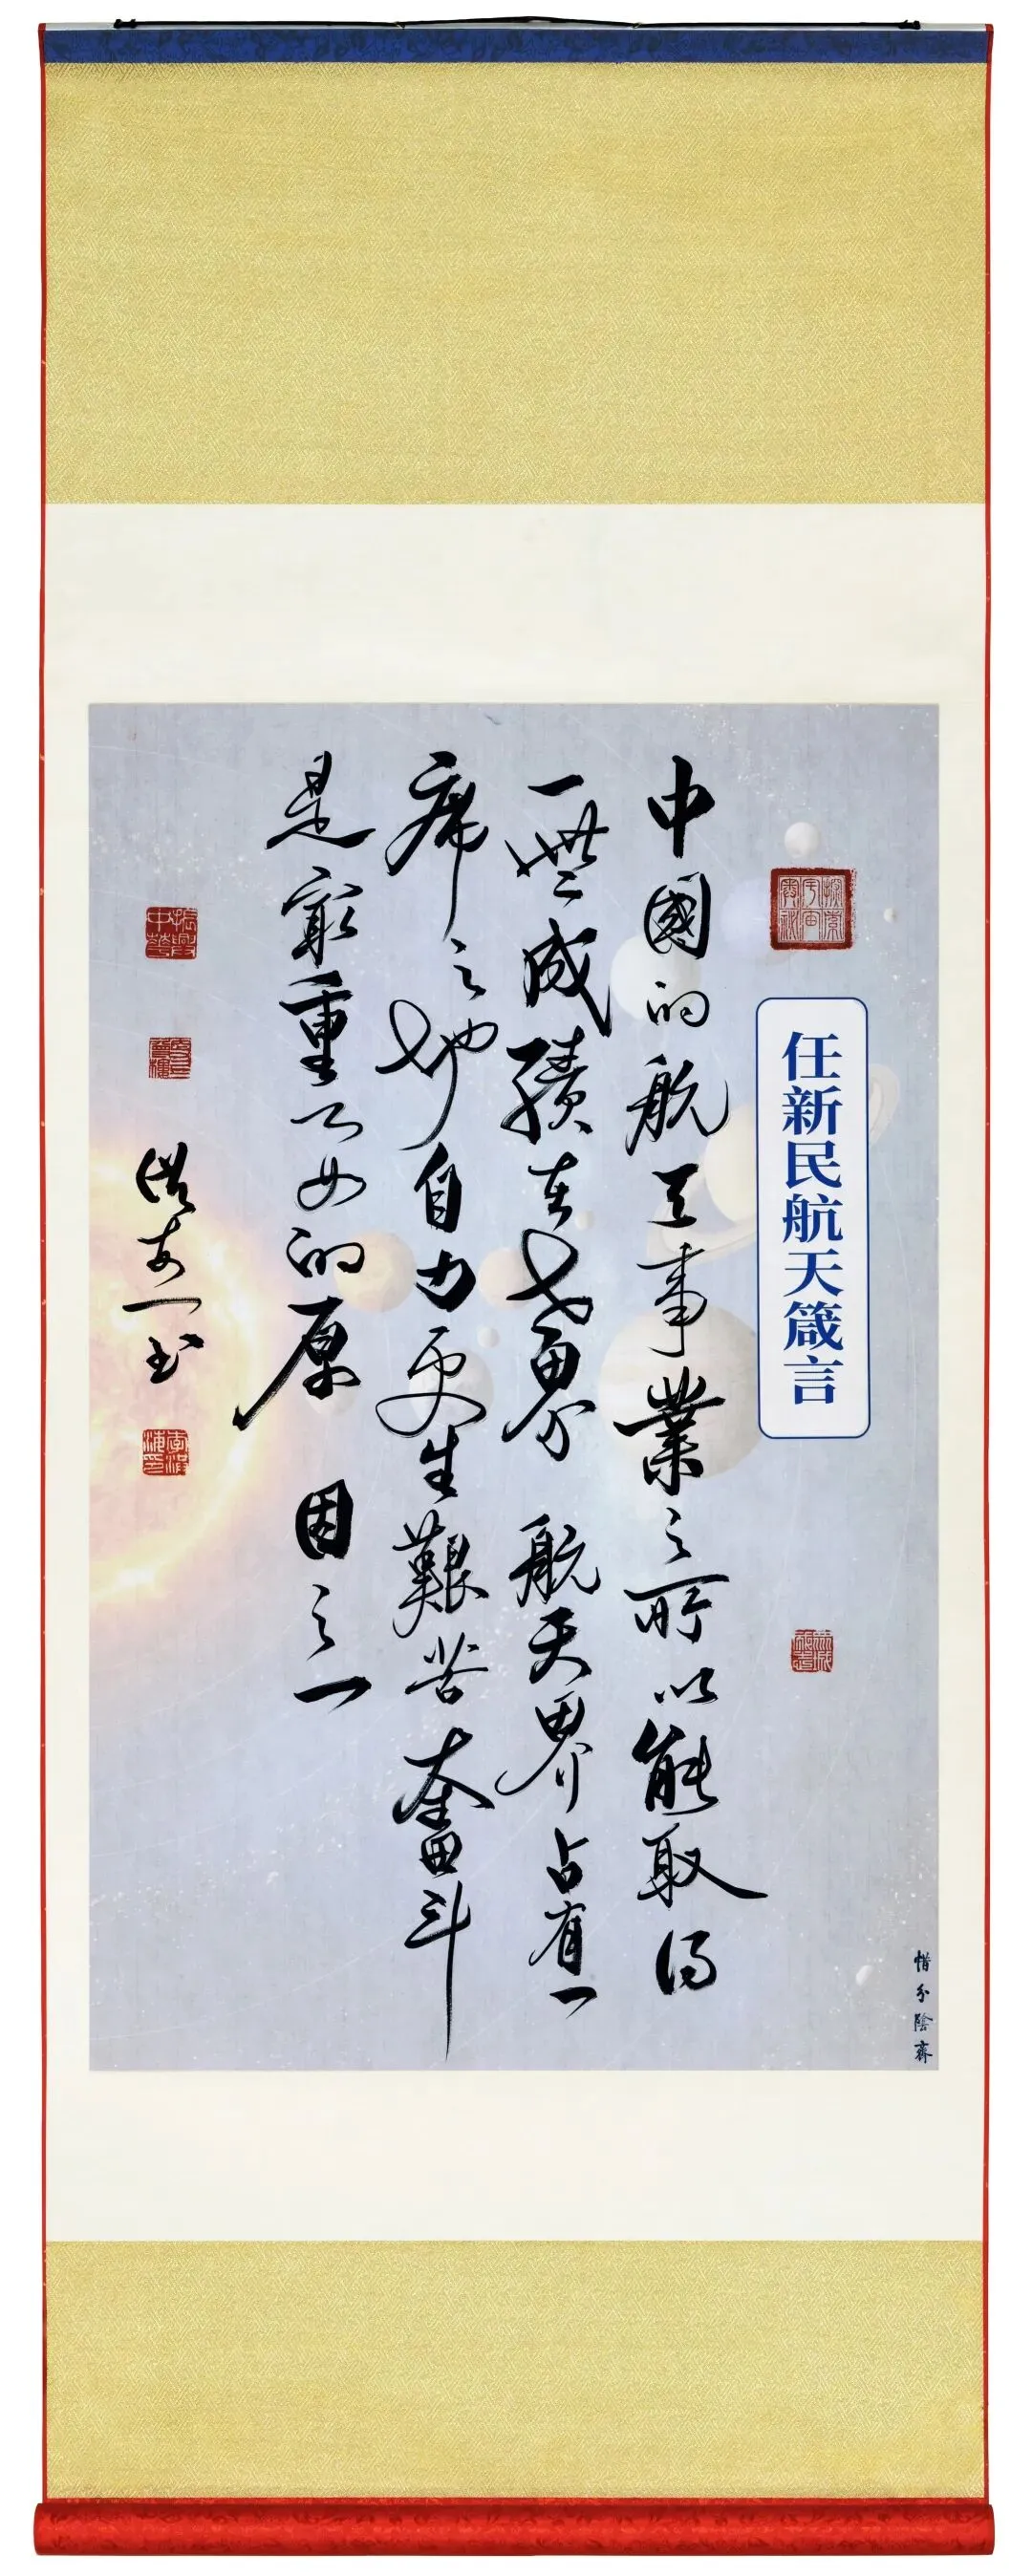 探索宇宙奧秘
任新民航天箴言
中國的航天事業之所以能取得
一些成績在世界航天界占有一
席之地自力更生艱苦奮斗
是最重要的原因之一
振興中華
惜分陰齋